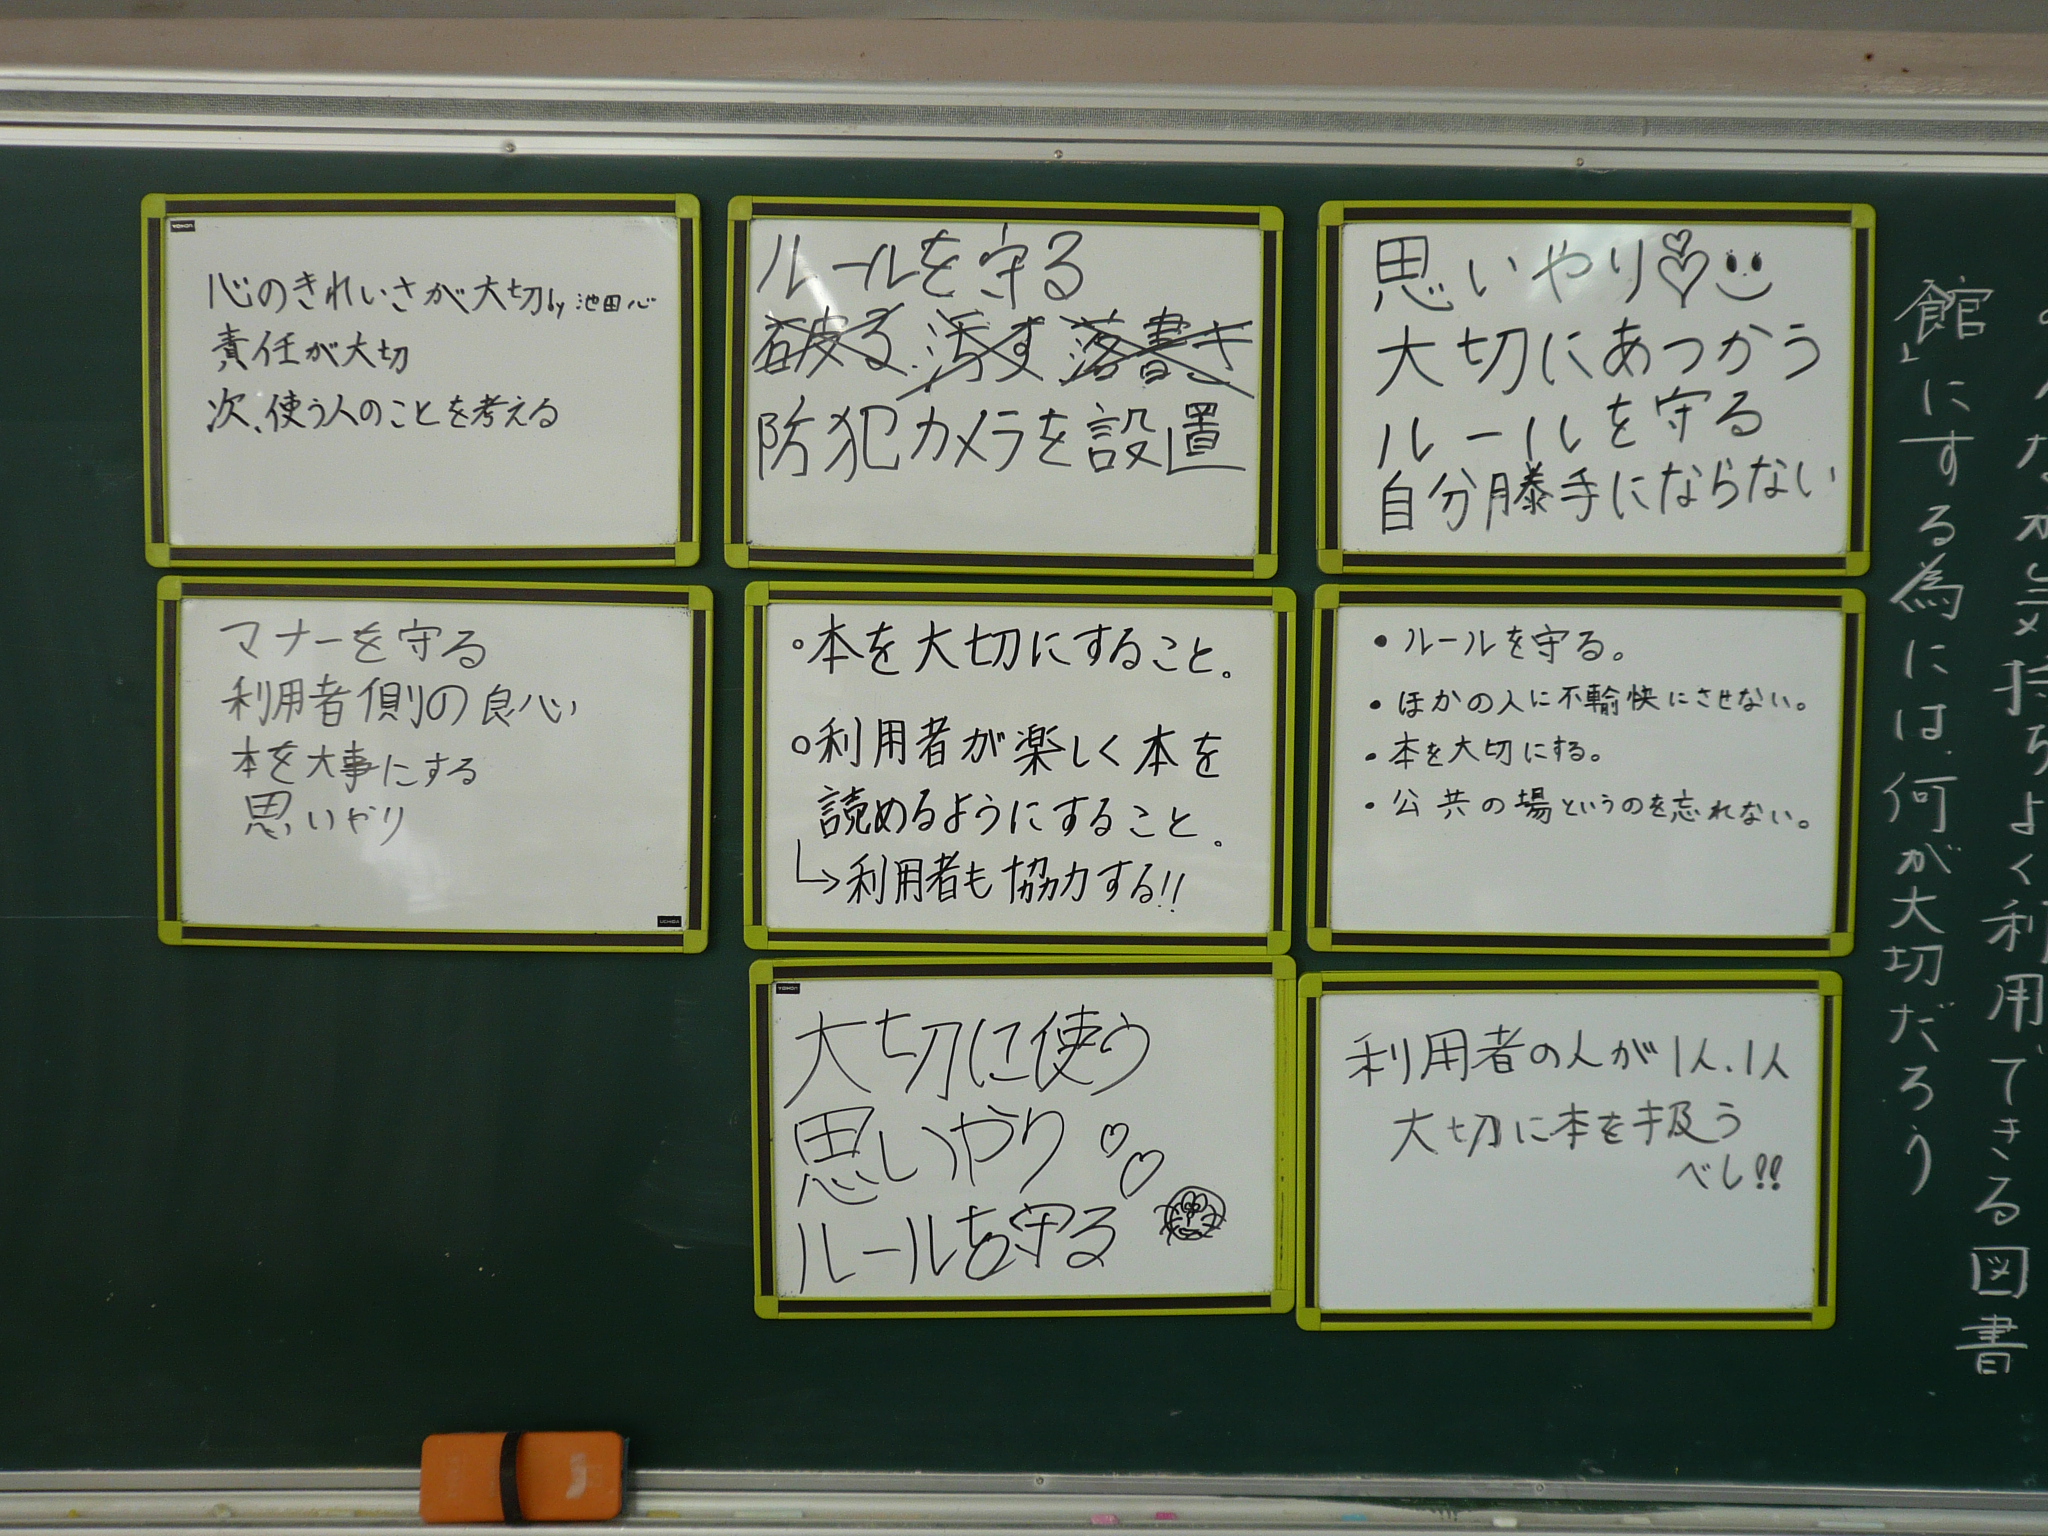 心のきれいさが大切by 池田心
責任が大切
次、使う人のことを考える
ルールを守る
破る 汚す 落書き
防犯カメラを設置
思いやり
大切にあつかう
ルールを守る
自分勝手にならない
マナーを守る
利用者側の良心
本を大事にする
思いやり
○本を大切にすること。
○利用者が楽しく本を
読めるようにすること。
↳利用者も協力する!!
・ルールを守る。
・ほかの人に不輸快にさせない。
・本を大切にする。
・公共の場というのを忘れない。
大切に使う
思いやり♡♡
ルールを守る
利用者の人が1人、1人
大切に本を扱う
べし!!
なが気持ちよく利用できる図書
館」にする為には、何が大切だろう